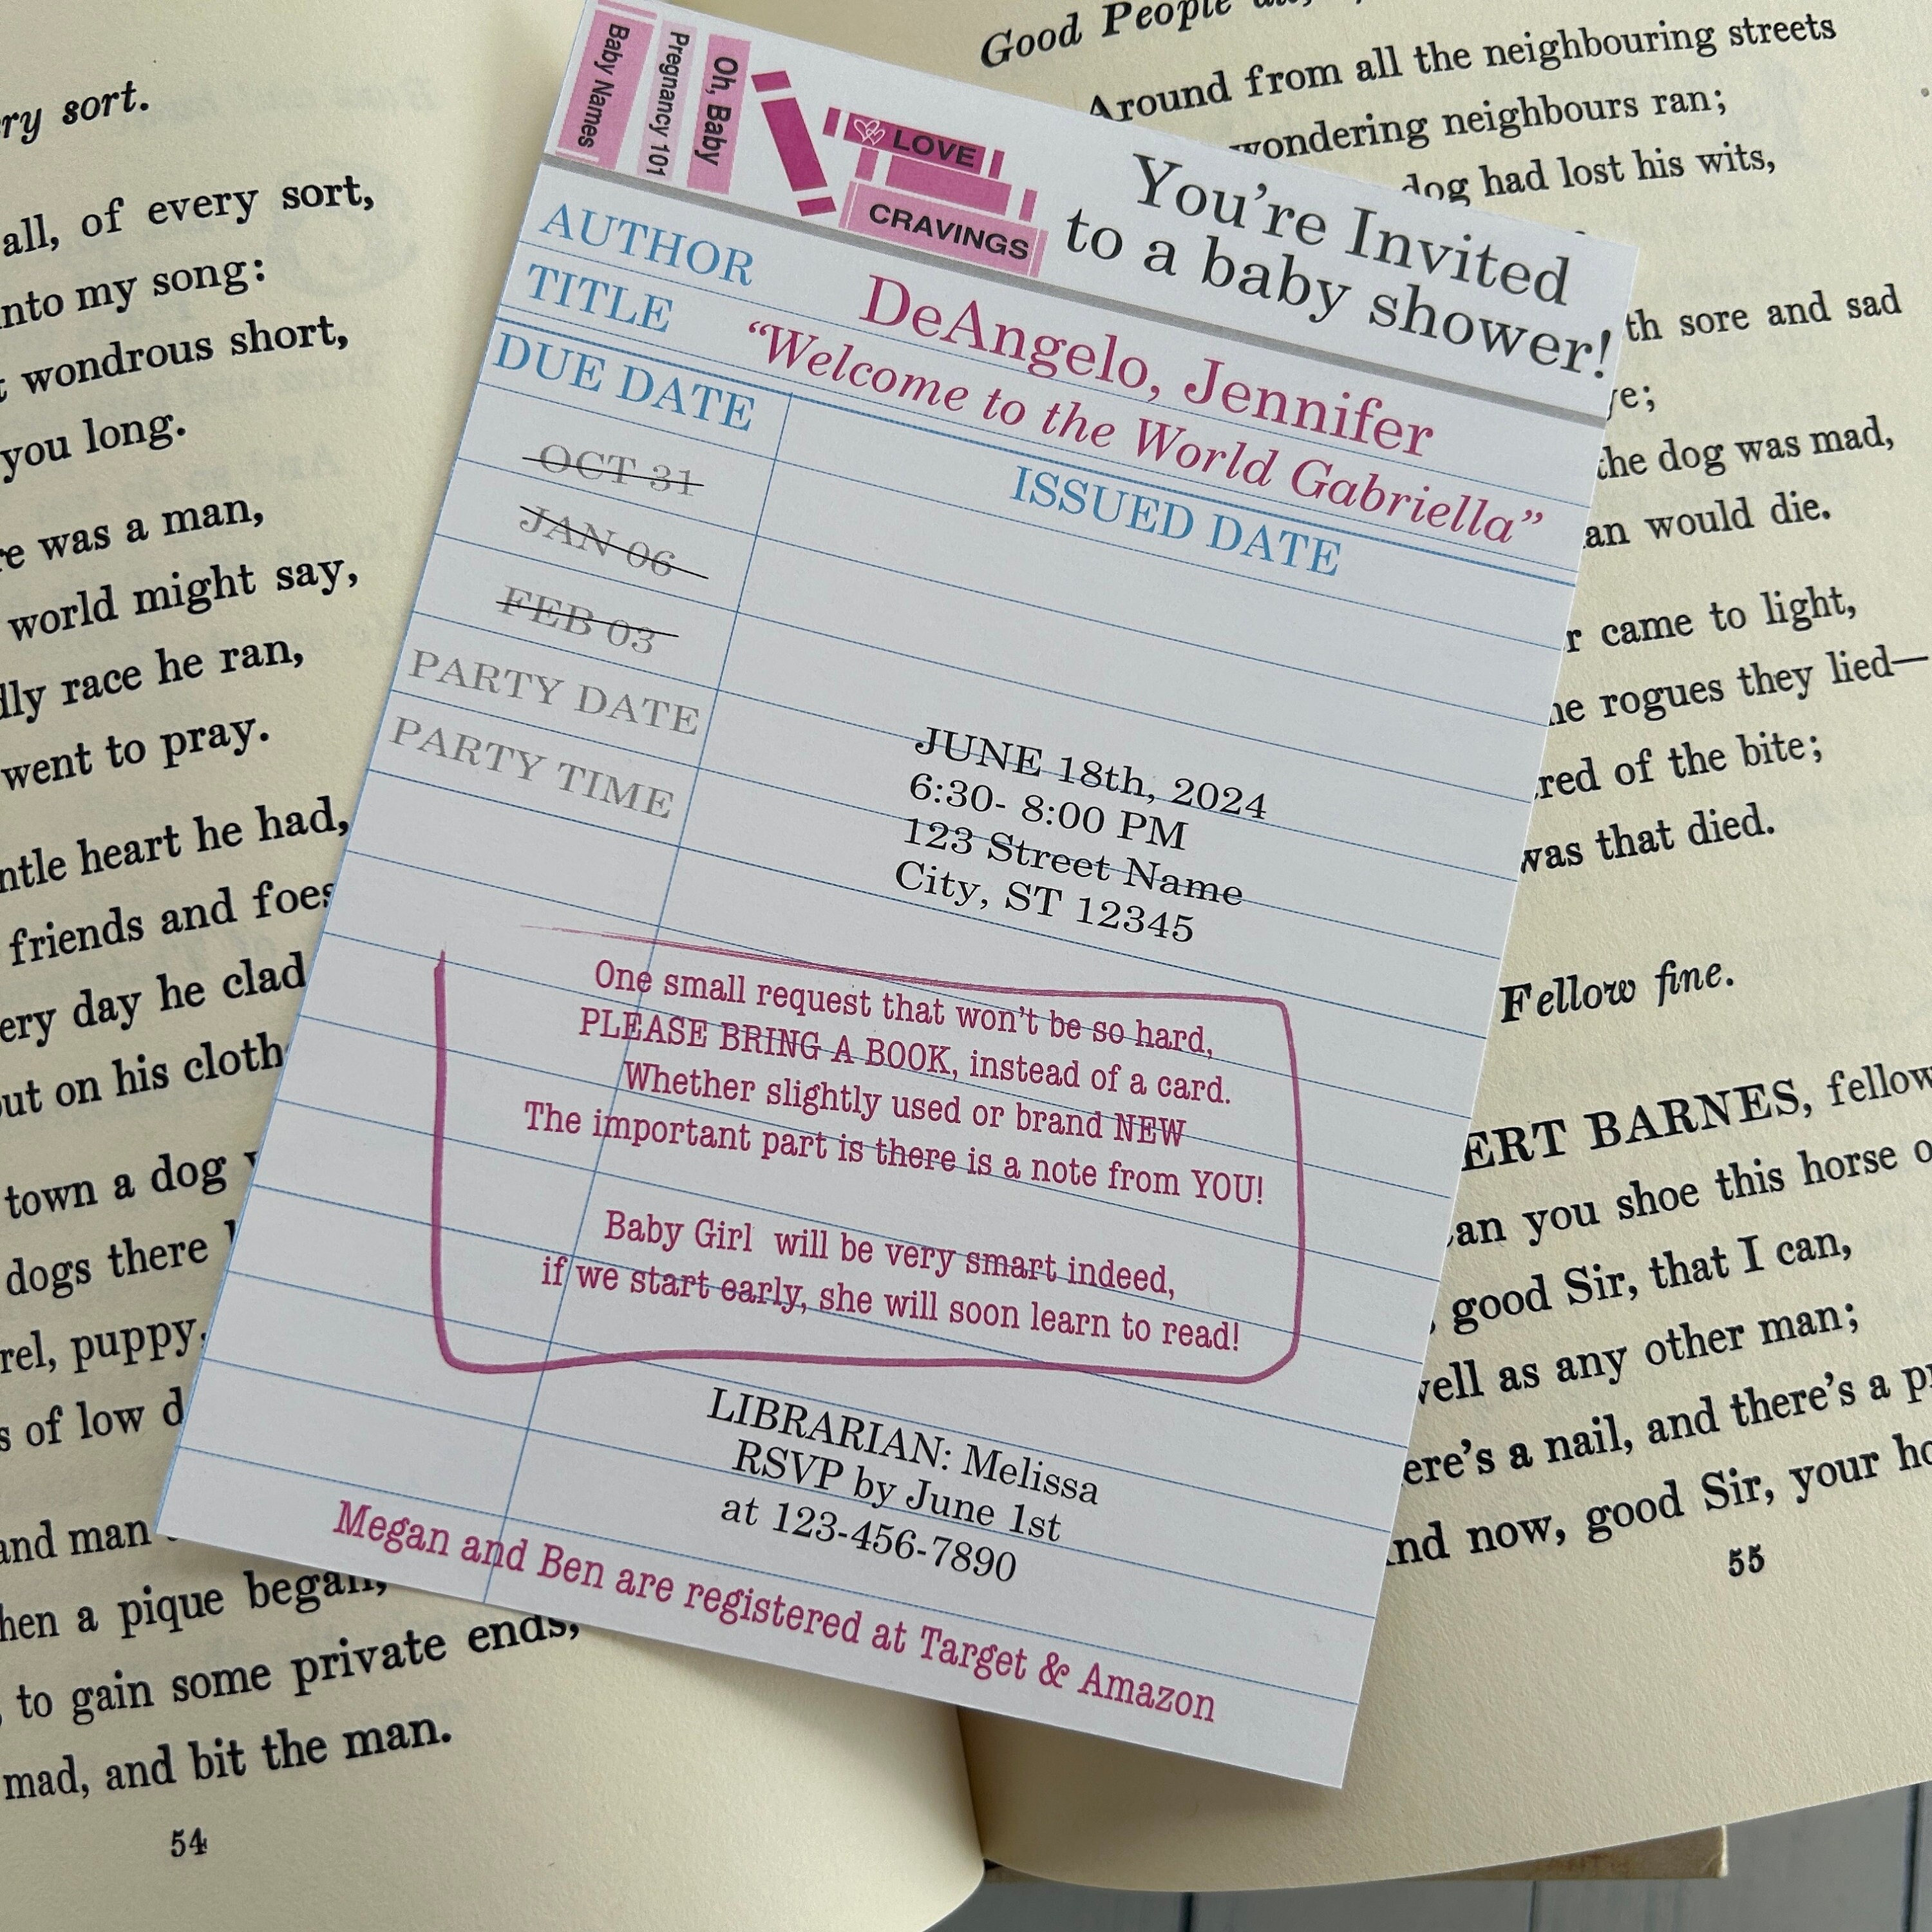 ry sort.
all, of every sort,
nto my song:
wondrous short,
you long.
re was a man,
world might say,
lly race he ran,
went to pray.
ntle heart he had,
friends and foes
ery day he clad
out on his cloth
town a dog
dogs there
rel, puppy,
s of low d
and man
hen a pique began,
to gain some private ends,
mad, and bit the man.
54
Baby Names
Pregnancy 101
Oh, Baby
LOVE
CRAVINGS
You're Invited
to a baby shower!
AUTHOR DeAngelo, Jennifer
TITLE "Welcome to the World Gabriella"
DUE DATE ISSUED DATE
OCT 31
JAN 06
FEB 03
PARTY DATE JUNE 18th, 2024
PARTY TIME 6:30- 8:00 PM
123 Street Name
City, ST 12345
One small request that won't be so hard,
PLEASE BRING A BOOK, instead of a card.
Whether slightly used or brand NEW
The important part is there is a note from YOU!
Baby Girl will be very smart indeed,
if we start early, she will soon learn to read!
LIBRARIAN: Melissa
RSVP by June 1st
at 123-456-7890
Megan and Ben are registered at Target & Amazon
Good People
Around from all the neighbouring streets
wondering neighbours ran;
dog had lost his wits,
th sore and sad
ye;
the dog was mad,
an would die.
r came to light,
he rogues they lied—
red of the bite;
was that died.
Fellow fine.
ERT BARNES, fellow
an you shoe this horse o
good Sir, that I can,
well as any other man;
ere's a nail, and there's a pr
nd now, good Sir, your ho
55